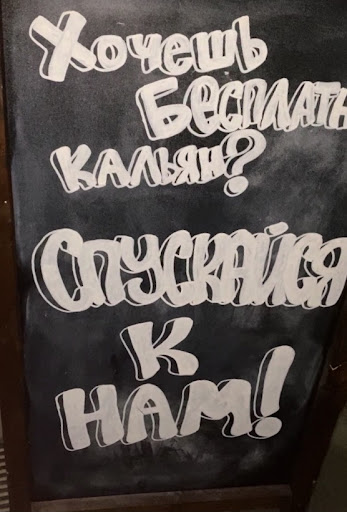 Хочешь
БЕСПЛАТН
КАЛЬЯН?
СПУСКАЙСЯ
К
НАМ!